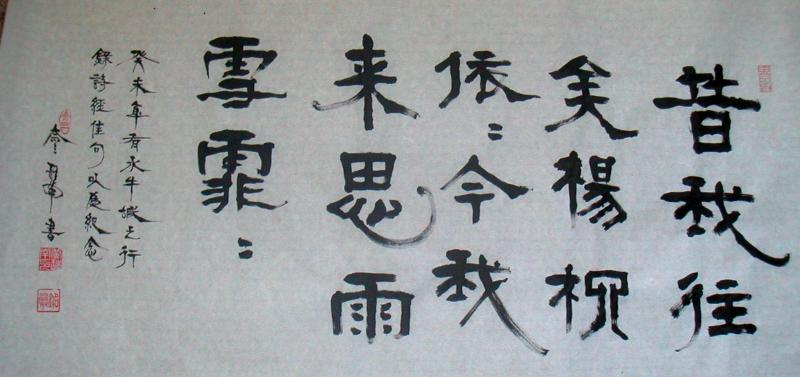 昔我往
矣楊柳
依〻今我
来思雨
雪霏〻
癸未年有水牛城之行
錄詩經佳句以紀念
書